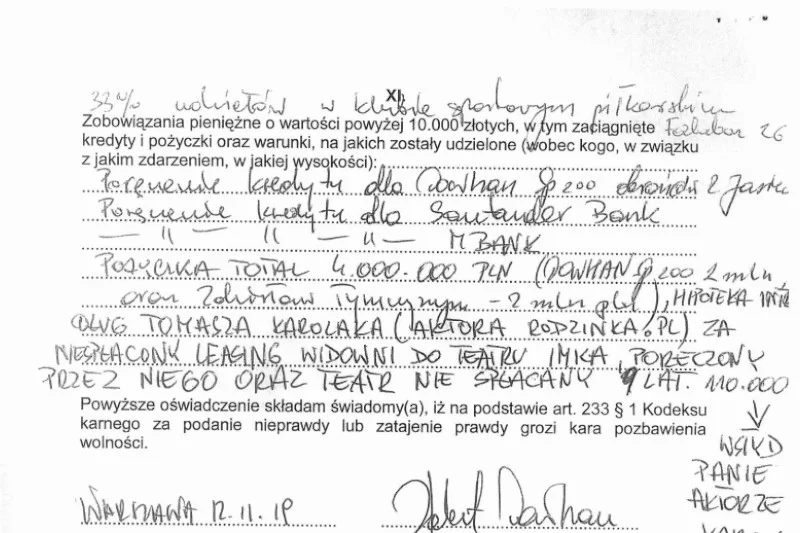 33% udziałów w klubie sportowym piłkarskim
XI.
Zobowiązania pieniężne o wartości powyżej 10.000 złotych, w tym zaciągnięte
kredyty i pożyczki oraz warunki, na jakich zostały udzielone (wobec kogo, w związku
z jakim zdarzeniem, w jakiej wysokości):
Poręczenie kredytu dla Dowhan Sp 200
Poręczenie kredytu dla Santander Bank
— " " — " — MBANK
POŻYCZKA TOTAL 4.000.000 PLN (DOWHAN Sp 200 2 mln
oraz Zdzisław Tymczyszyn - 2 mln), HIPOTEKA
DŁUG TOMASZA KAROLAKA (AKTORA RODZINKA.PL) ZA
NIESPŁACONY LEASING WIDOWNI DO TEATRU IMKA, PORĘCZONY
PRZEZ NIEGO ORAZ TEATR NIE SPŁACANY 9 LAT. 110.000
Powyższe oświadczenie składam świadomy(a), iż na podstawie art. 233 § 1 Kodeksu
karnego za podanie nieprawdy lub zatajenie prawdy grozi kara pozbawienia
wolności.
WSTYD
PANIE
AKTORZE
WARSZAWA 12.11.19
Robert Dowhan